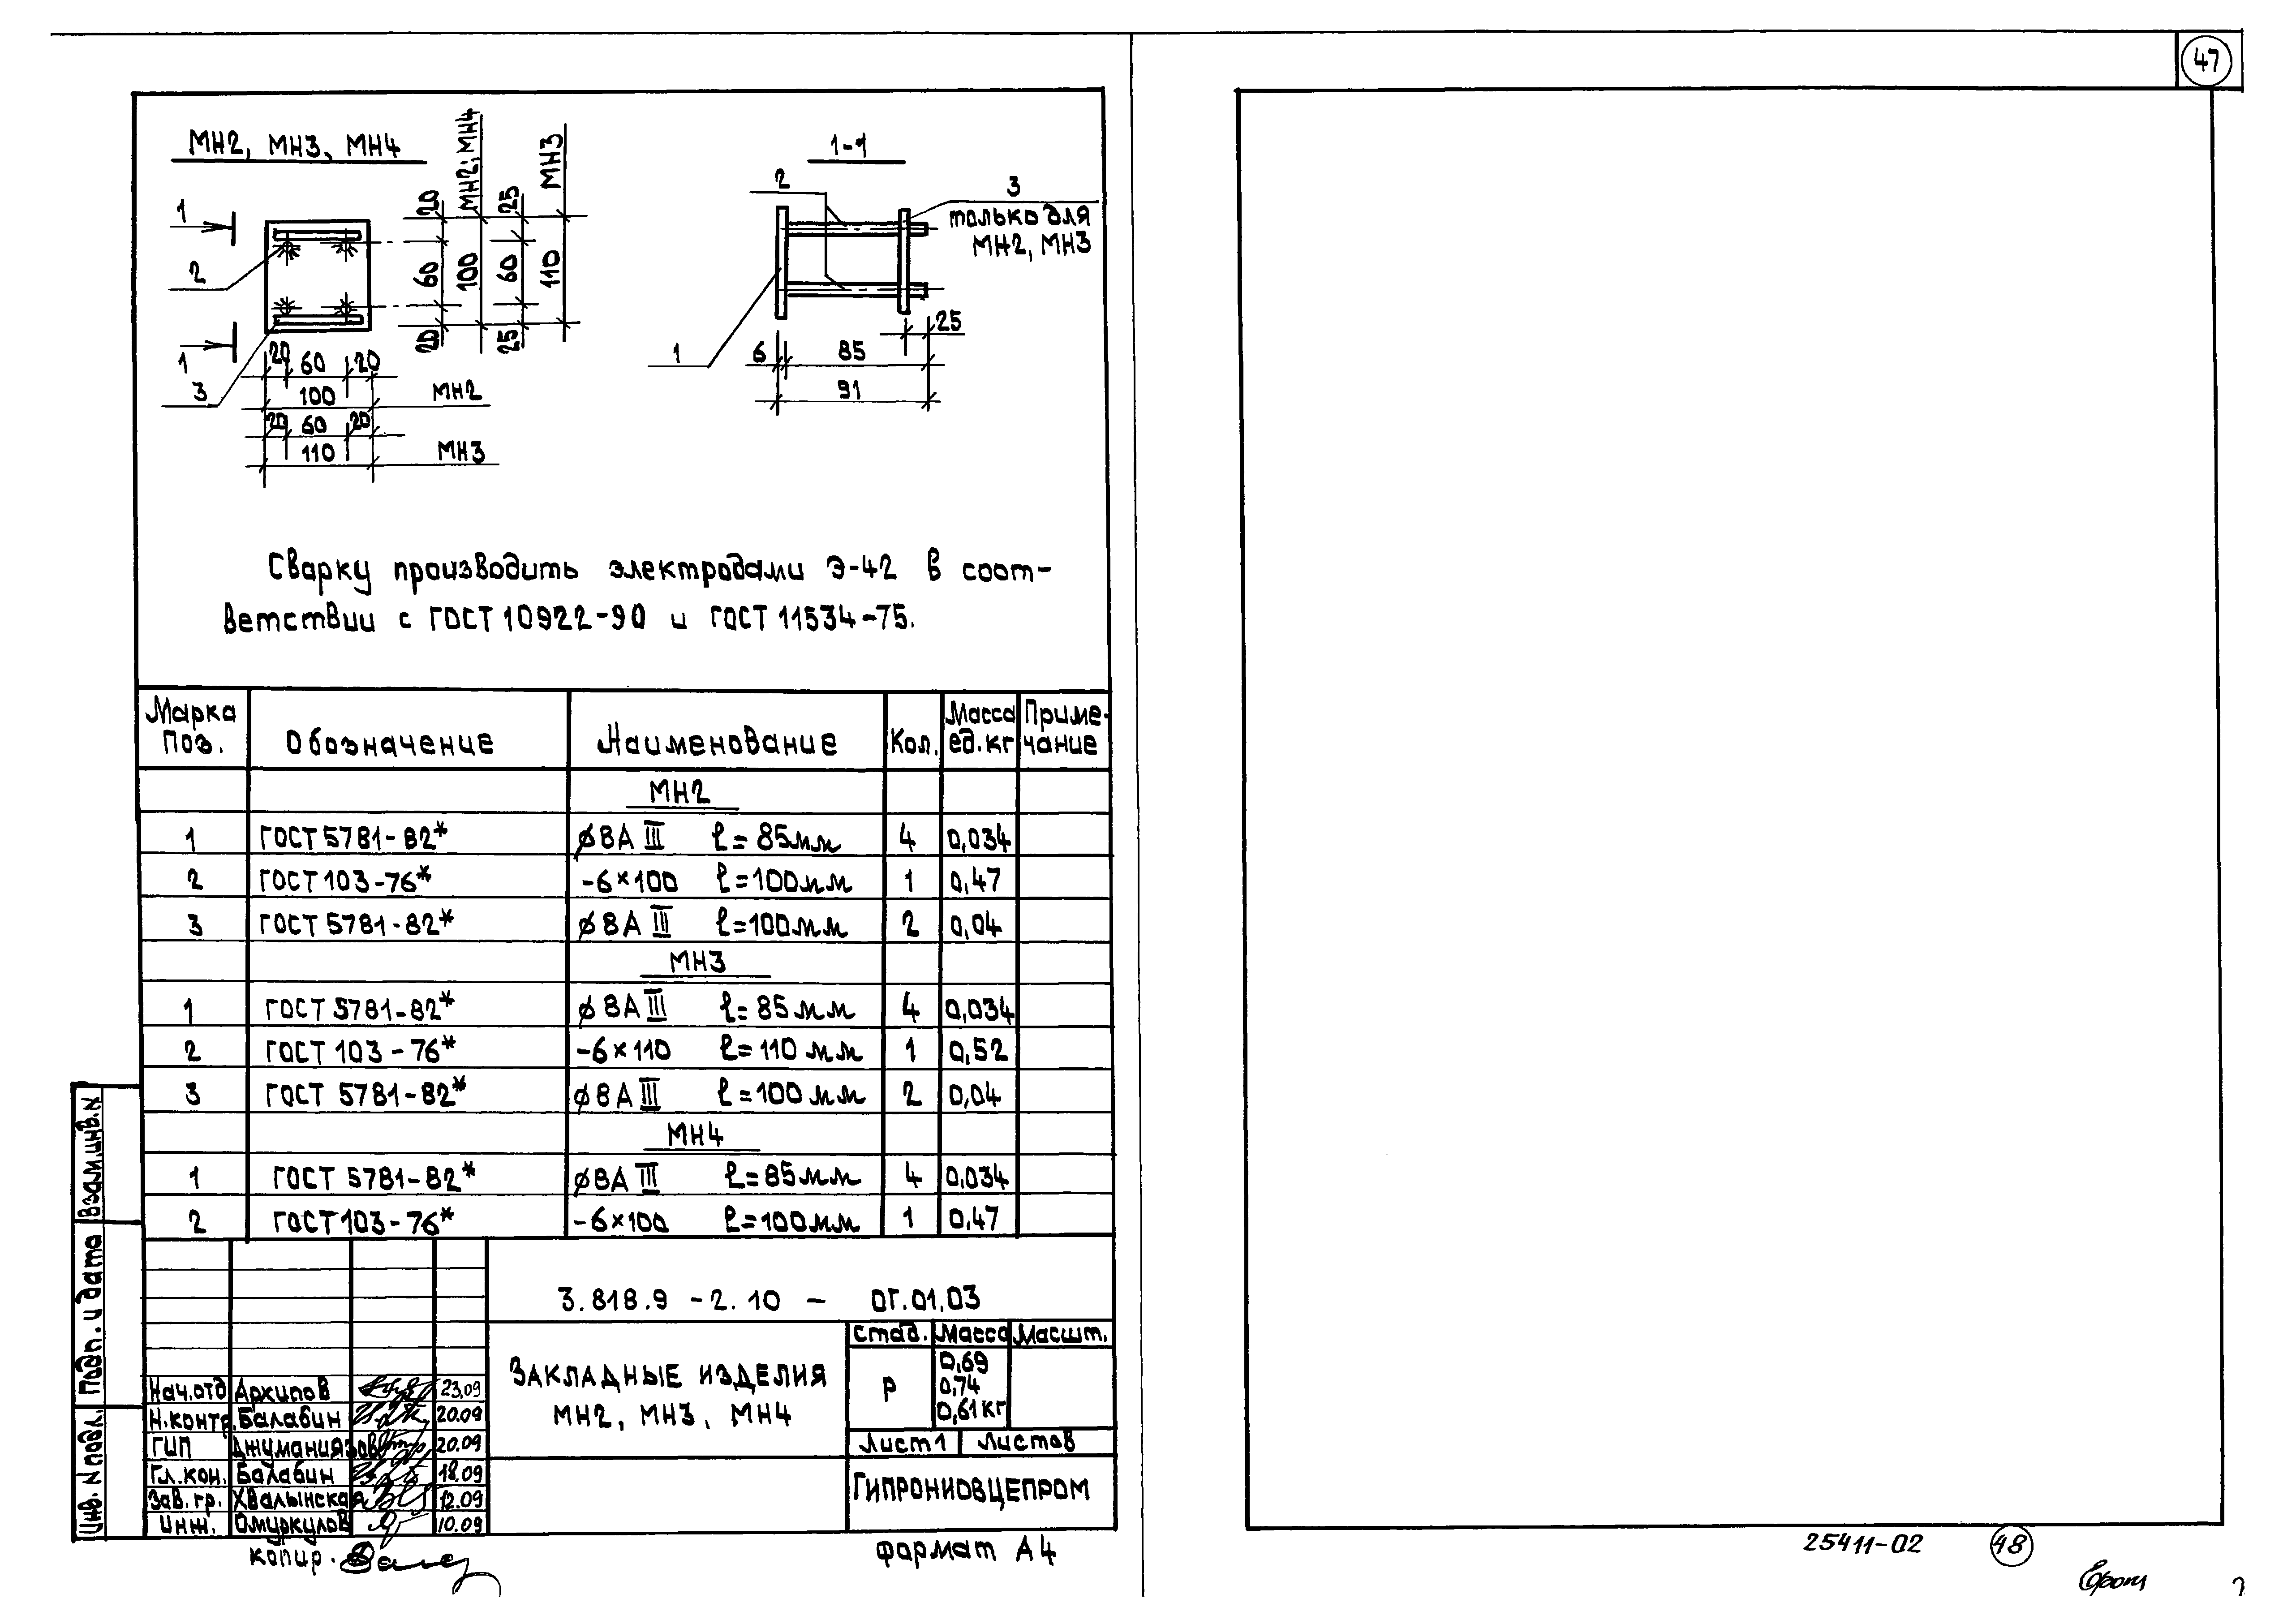 47
МН2, МН3, МН4
1-1
1
2
1
3
20
60
20
МН2; МН4
100
25
60
25
МН3
110
20 60 20
100 МН2
20 60 20
110 МН3
2
3
только для
МН2, МН3
1
25
6 85
91
Сварку производить электродами Э-42 в соот-
ветствии с ГОСТ 10922-90 и ГОСТ 11534-75.
Марка Поз. Обозначение Наименование Кол. Масса ед.кг Приме-чание
МН2
1 ГОСТ 5781-82* ⌀8АIII ℓ=85мм 4 0,034
2 ГОСТ 103-76* -6×100 ℓ=100мм 1 0,47
3 ГОСТ 5781-82* ⌀8АIII ℓ=100мм 2 0,04
МН3
1 ГОСТ 5781-82* ⌀8АIII ℓ=85мм 4 0,034
2 ГОСТ 103-76* -6×110 ℓ=110мм 1 0,52
3 ГОСТ 5781-82* ⌀8АIII ℓ=100мм 2 0,04
МН4
1 ГОСТ 5781-82* ⌀8АIII ℓ=85мм 4 0,034
2 ГОСТ 103-76* -6×100 ℓ=100мм 1 0,47
3.818.9 -2.10 - ОГ.01.03
Закладные изделия
МН2, МН3, МН4
Стад. Масса Масшт.
Р
0,69
0,74
0,61кг
Лист 1 Листов
Гипрониовцепром
Нач.отд Архипов 23.09
Н.контр. Балабин 20.09
ГИП Джуманиязов 20.09
Гл.кон. Балабин 18.09
Зав.гр. Хвалынская 12.09
Инж. Омуркулов 10.09
Взам.инв.N
Подп. и дата
Инв. N подл.
копир.
формат А4
25411-02
48